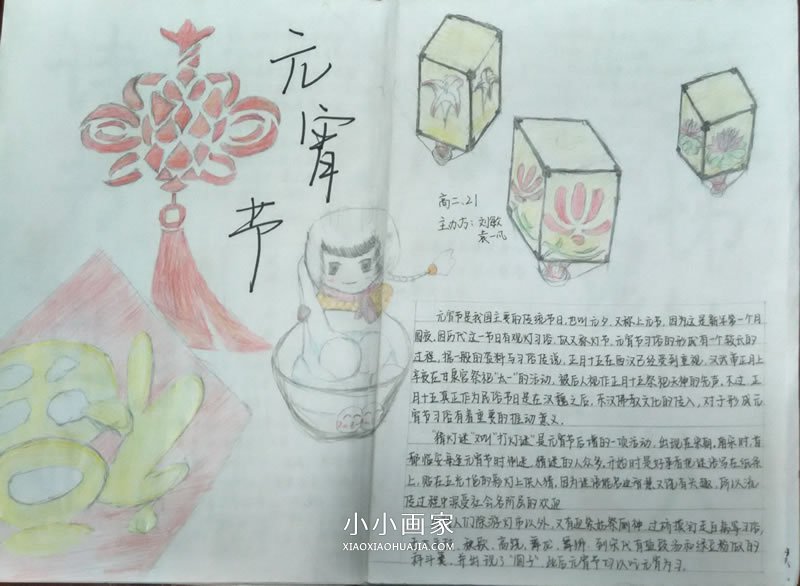 元宵节
高二.21
主办方：刘敏
袁一凡
元宵节是我国主要的传统节日，也叫元夕，又称上元节，因为这是新年第一个月
圆夜，因历代这一节日有观灯习俗，故又称灯节。元宵节习俗的形成有一个较长的
过程，据一般的资料与习俗传说，正月十五在西汉已经受到重视，汉武帝正月上
辛夜在甘泉宫祭祀“太一”的活动，被后人视作正月十五祭祀天神的先声。不过，正
月十五真正作为民俗节日是在汉魏之后，东汉佛教文化的传入，对于形成元
宵节习俗有着重要的推动意义。
“猜灯谜”又叫“打灯谜”是元宵节后增的一项活动，出现在宋朝。南宋时，首
都临安每逢元宵节时制迷，猜谜的人众多。开始时是好事者把谜语写在纸条
上，贴在五光十色的彩灯上供人猜，因为谜语能启迪智慧又饶有兴趣，所以流
传过程中深受社会各阶层的欢迎
人们除游灯市以外，又有迎紫姑祭厕神、过桥摸钉走百病等习俗，
秧歌，高跷，舞龙，舞狮
小小画家
XIAOXIAOHUAJIA.COM